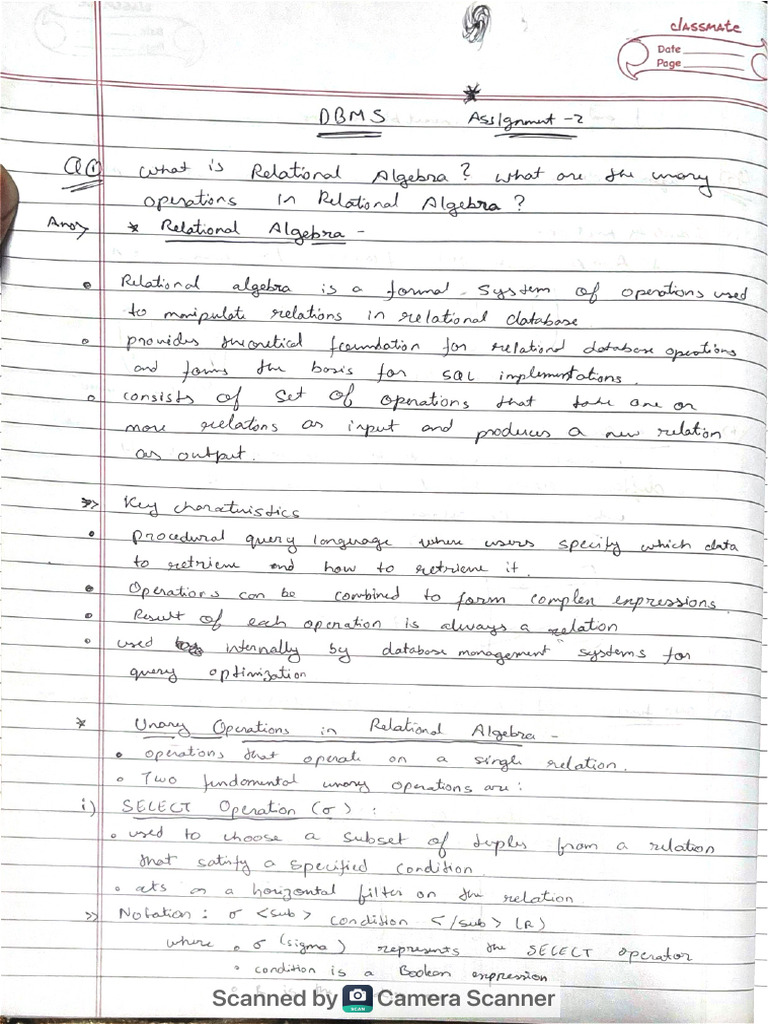 classmate
Date
Page
DBMS Assignment -2
Q① What is Relational Algebra? What are the unary
operations in Relational Algebra?
Ans> * Relational Algebra -
• Relational algebra is a formal system of operations used
to manipulate relations in relational database
• provides theoretical foundation for relational database operations
and forms the basis for SQL implementations.
• consists of set of operations that take one or
more relations as input and produces a new relation
as output.
>> Key charactristics
• procedural query language where users specify which data
to retrieve and how to retrieve it.
• Operations can be combined to form complex expressions.
• Result of each operation is always a relation
• used internally by database management systems for
query optimization
* Unary Operations in Relational Algebra -
• operations that operate on a single relation.
• Two fundamental unary operations are:
i) SELECT Operation (σ) :
• used to choose a subset of tuples from a relation
that satisfy a specified condition
• acts as a horizontal filter on the relation
>> Notation: σ <sub> condition </sub> (R)
where • σ (sigma) represents the SELECT operator
• condition is a Boolean expression
Scanned by Camera Scanner